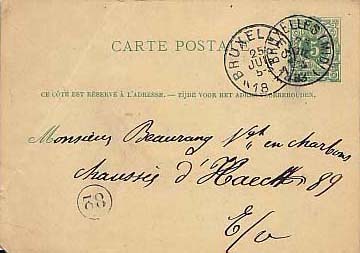 CARTE POSTA
BRUXEL
25
JUIL
5-
18
BRUXELLES (MIDI)
5
CE CÔTÉ EST RÉSERVÉ À L'ADRESSE. — ZIJDE VOOR HET ADRES VOORBEHOUDEN.
Monsieur Beaurang Ngt en charbons
chaussée d'Haecht 89
E/V
33